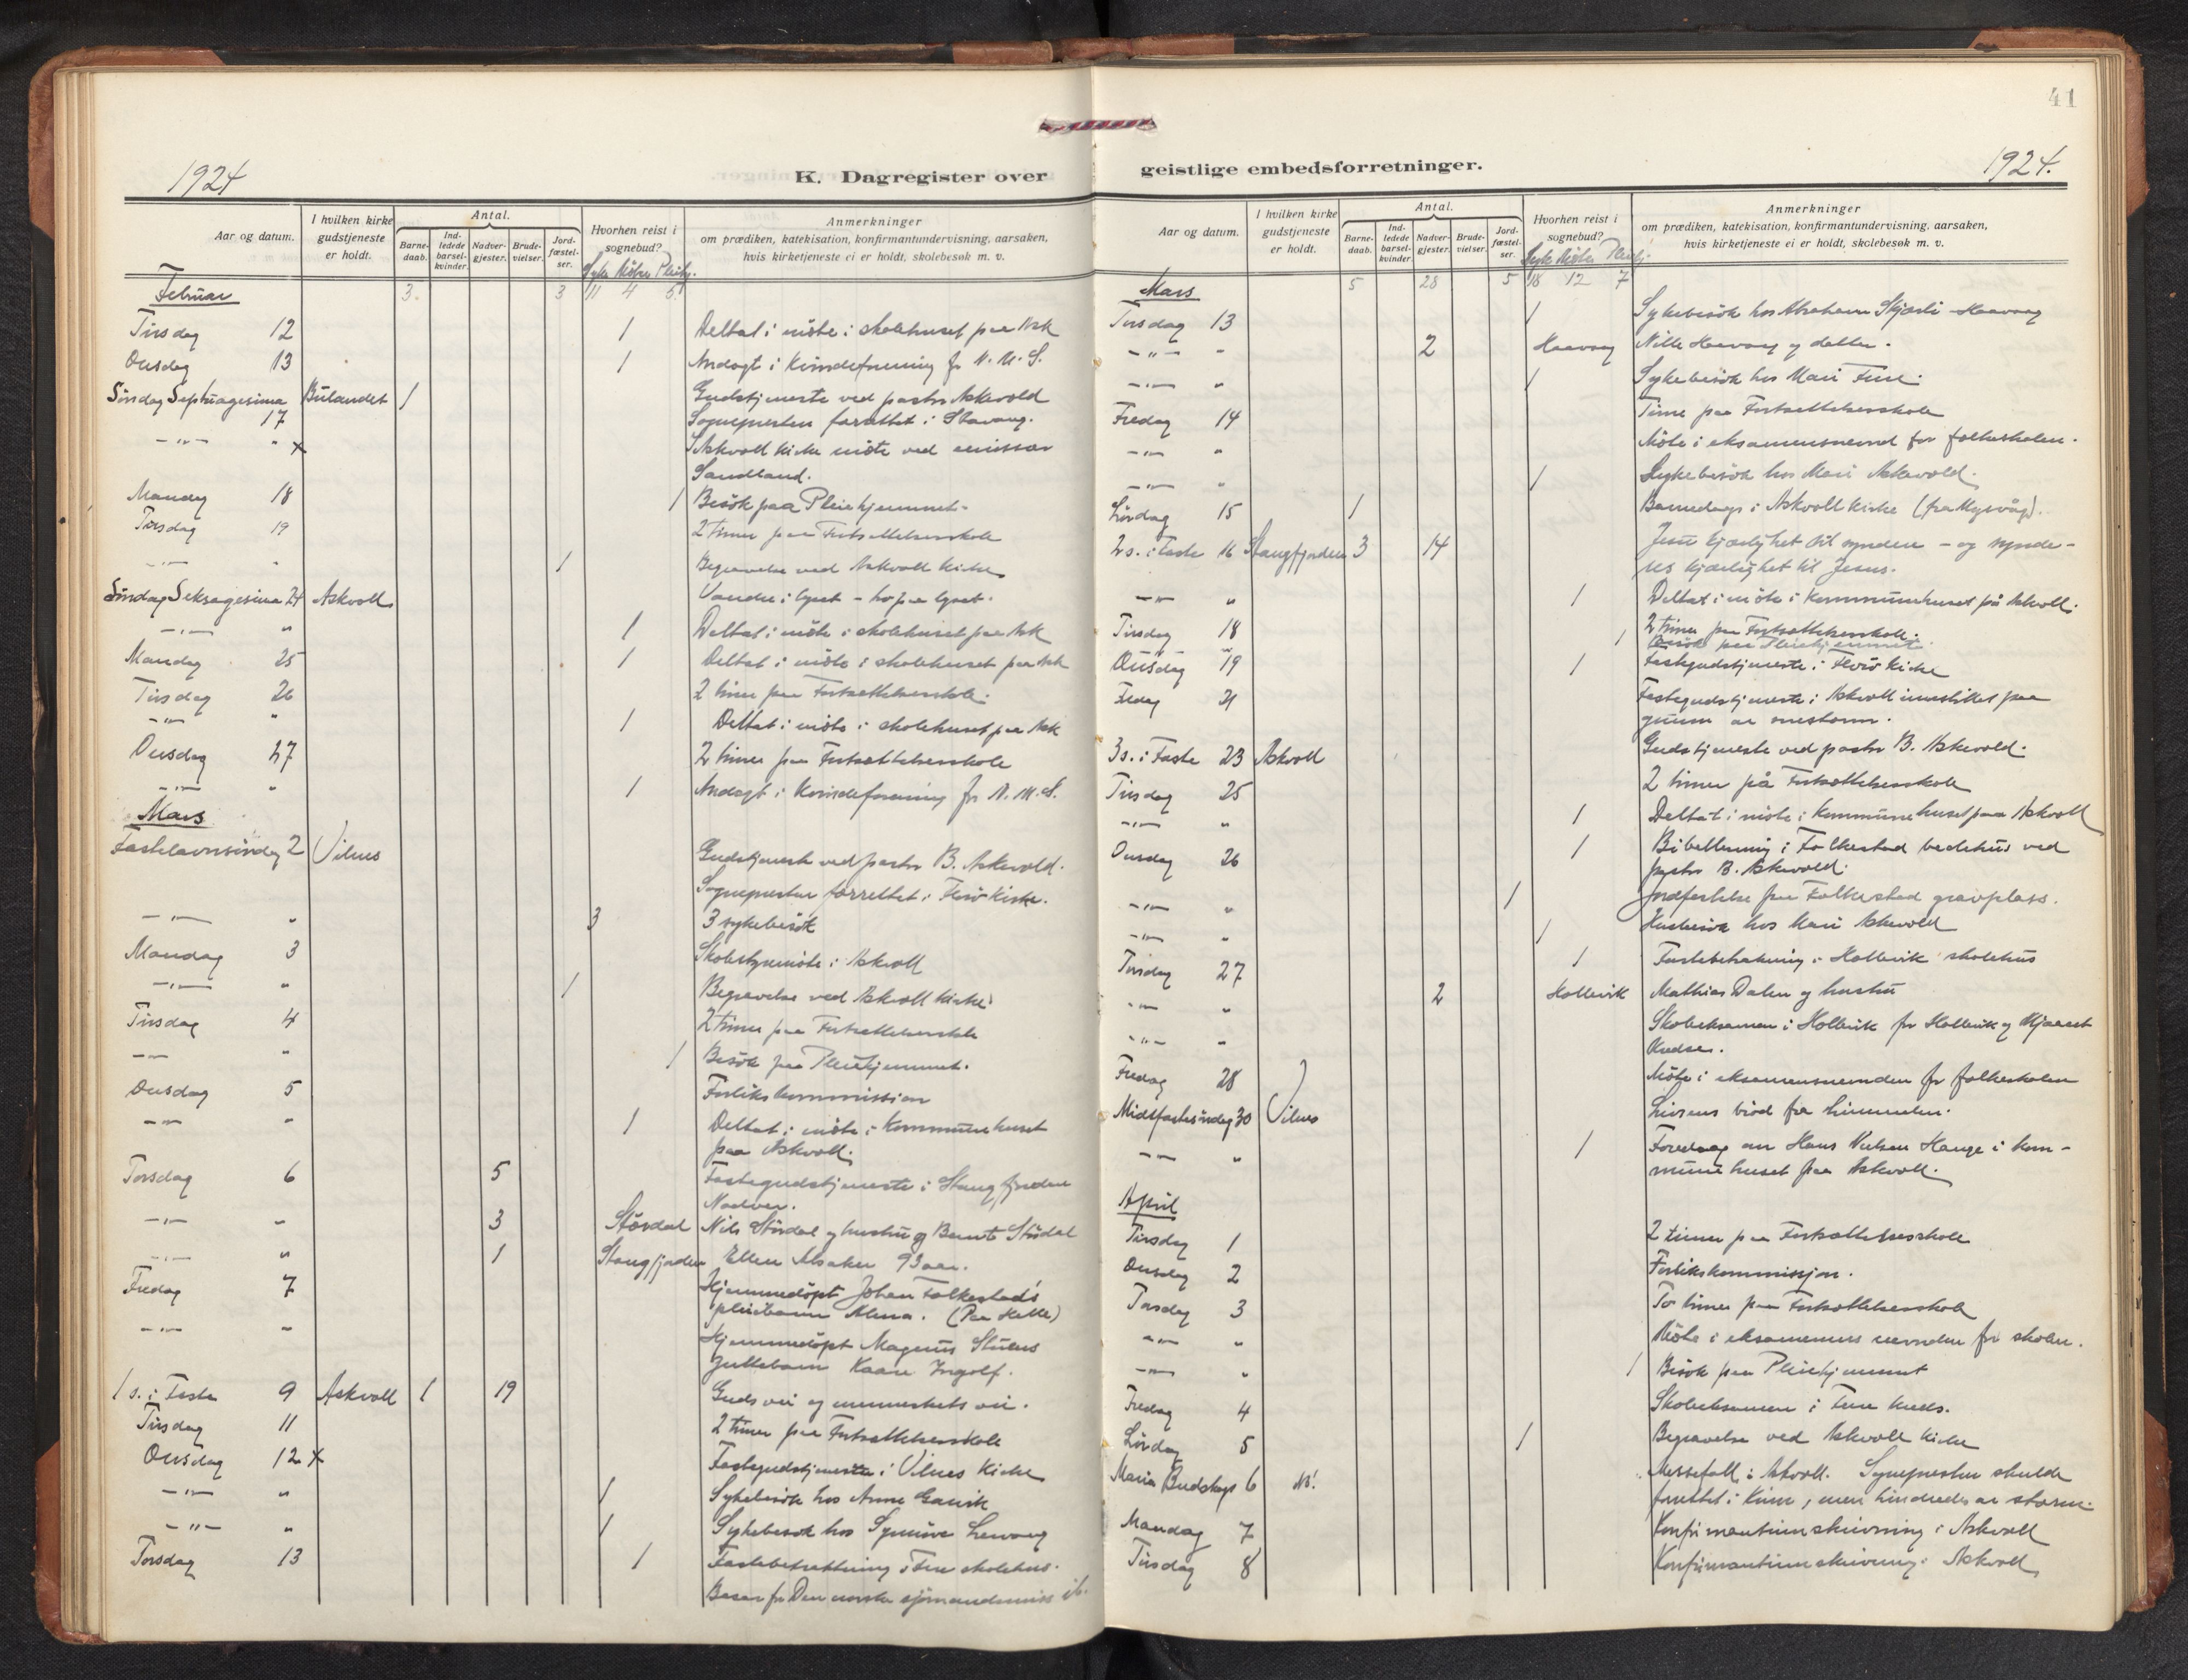 41
1924
K. Dagregister over
Aar og datum.
I hvilken kirke gudstjeneste er holdt.
Antal.
Barne-daab.
Ind-ledede barsel-kvinder.
Nadver-gjester.
Brude-vielser.
Jord-fæstel-ser.
Hvorhen reist i sognebud?
Syke Möter Pleiehj.
Anmerkninger
om prædiken, katekisation, konfirmantundervisning, aarsaken,
hvis kirketjeneste ei er holdt, skolebesøk m. v.
Februar 3. 3 11 4 5
Tirsdag 12 1 Deltat i möte i skolehuset paa Ask
Onsdag 13 1 Andagt i Kvindeforening for N.M.S.
Söndag Septuagesima 17 Bulandet 1 Gudstjeneste ved pastor Askvold
Sognepresten forrettet i Stavang.
-"- " x I Askvoll kirke möte ved emissær
Sandland.
Mandag 18 1 Besök paa Pleiehjemmet.
Tirsdag 19 2 timer paa Fortsættelsesskole
-"- " 1 Begravelse ved Askvoll kirke
Söndag Seksagesima 24 Askvoll Vandre i lyset - ho paa lyset.
-"- " 1 Deltat i möte i skolehuset paa Ask
Mandag 25 1 Deltat i möte i skolehuset paa Ask
Tirsdag 26 2 timer paa Fortsættelsesskole.
-"- " 1 Deltat i möte i skolehuset paa Ask
Onsdag 27 2 timer paa Fortsættelsesskole
-"- " 1 Andagt i Kvindeforening for N.M.S.
Mars
Fastelavnssöndag 2 Vilnes Gudstjeneste ved pastor B. Askevold.
Sognepresten forrettet i Florö Kirke.
-"- " 3 3 sykebesök
Mandag 3 Skolestyremöte i Askvoll
-"- " 1 Begravelse ved Askvoll kirke
Tirsdag 4 2 timer paa Fortsættelsesskole
-"- " 1 Besök paa Pleiehjemmet.
Onsdag 5 Forlikskommission
-"- " 1 Deltat i möte i Kommunehuset
paa Askvoll.
Torsdag 6 5 Fastegudstjeneste i Stangfjorden
Nadver.
-"- " 3 Stördal Nils Stördal og hustru og Bernt Stördal
-"- " 1 Stangfjorden Ellen Alsaker 93 aar.
Fredag 7 Hjemmedöpt Johan Folkestads
pleiebarn Alma. (Paa Helle)
-"- " Hjemmedöpt Magnus
guttebarn Kaare Ingolf.
1 s. i Faste 9 Askvoll 1 19 Guds vei og menneskets vei.
Tirsdag 11 2 timer paa Fortsættelsesskole
Onsdag 12 x Fastegudstjeneste i Vilnes Kirke
-"- " 1 Sykebesök hos Anne Gavik
-"- " 1 Sykebesök hos Synnöve
Torsdag 13 1 Fastebetraktning i Fure skolehus.
Basar for Den norske sjömandsmisjon
1924.
geistlige embedsforretninger.
Aar og datum.
I hvilken kirke gudstjeneste er holdt.
Antal.
Barne-daab.
Ind-ledede barsel-kvinder.
Nadver-gjester.
Brude-vielser.
Jord-fæstel-ser.
Hvorhen reist i sognebud?
Syke Möter Pleiehj.
Anmerkninger
om prædiken, katekisation, konfirmantundervisning, aarsaken,
hvis kirketjeneste ei er holdt, skolebesøk m. v.
Mars 5 28 5 18 12 7
Torsdag 13 1 Sykebesök hos Abraham Skjærli Haavaag
-"- " 2 Haavaag Nille Haavaag og datter.
-"- " 1 Sykebesök hos Mari Fure.
Fredag 14 Time paa Fortsættelsesskole
-"- " Möte i eksamensnemnd for folkeskolen.
-"- " 1 Sykebesök hos Mari Askevold.
Lördag 15 1 Barnedaap i Askvoll kirke
2 s. i Faste 16 Stangfjorden 3 14 Jesu kjærlighet til synden - og synde-
res kjærlighet til Jesus.
-"- " 1 Deltat i möte i Kommunehuset på Askvoll.
Tirsdag 18 2 timer paa Fortsættelsesskole.
1 Besök paa Pleiehjemmet.
Onsdag 19 1 Fastegudstjeneste i Florö Kirke
Fredag 21 Fastegudstjeneste i Askvoll innstillet paa
grunn av snestorm.
3 s. i Faste 23 Askvoll Gudstjeneste ved pastor B. Askevold.
Tirsdag 25 2 timer på Fortsættelsesskole
-"- " 1 Deltat i möte i Kommunehuset paa Askvoll
Onsdag 26 1 Bibellesning i Folkestad bedehus ved
pastor B. Askevold.
-"- " 1 Jordfestelse paa Folkestad gravplass.
-"- " 1 Husbesök hos Mari Askevold
Torsdag 27 1 Fastebetraktning i Hollevik skolehus
-"- " 2 Hollevik Mathias Dalen og hustru
-"- " Skoleeksamen i Hollevik for Hollevik og
Kredser.
Fredag 28 Möte i eksamensnemnden for folkeskolen
Midtfastesöndag 30 Vilnes Livsens bröd fra himmelen.
-"- " 1 Foredrag om Hans Nielsen Hauge i Kom-
munehuset paa Askvoll.
April
Tirsdag 1 2 timer paa Fortsættelsesskole
Onsdag 2 Forlikskommissjon.
Torsdag 3 To timer paa Fortsættelsesskole
-"- " Möte i eksamensnemnden for skolen.
-"- " 1 Besök paa Pleiehjemmet
Fredag 4 Skoleeksamen i Fure kreds.
Lördag 5 1 Begravelse ved Askvoll kirke
Maria Budskaps 6 Messefall i Askvoll. Sognepresten skulde
forrettet i Kinn, men hindredes av storm.
Mandag 7 Konfirmantinnskrivning i Askvoll
Tirsdag 8 Konfirmantinnskrivning i Askvoll